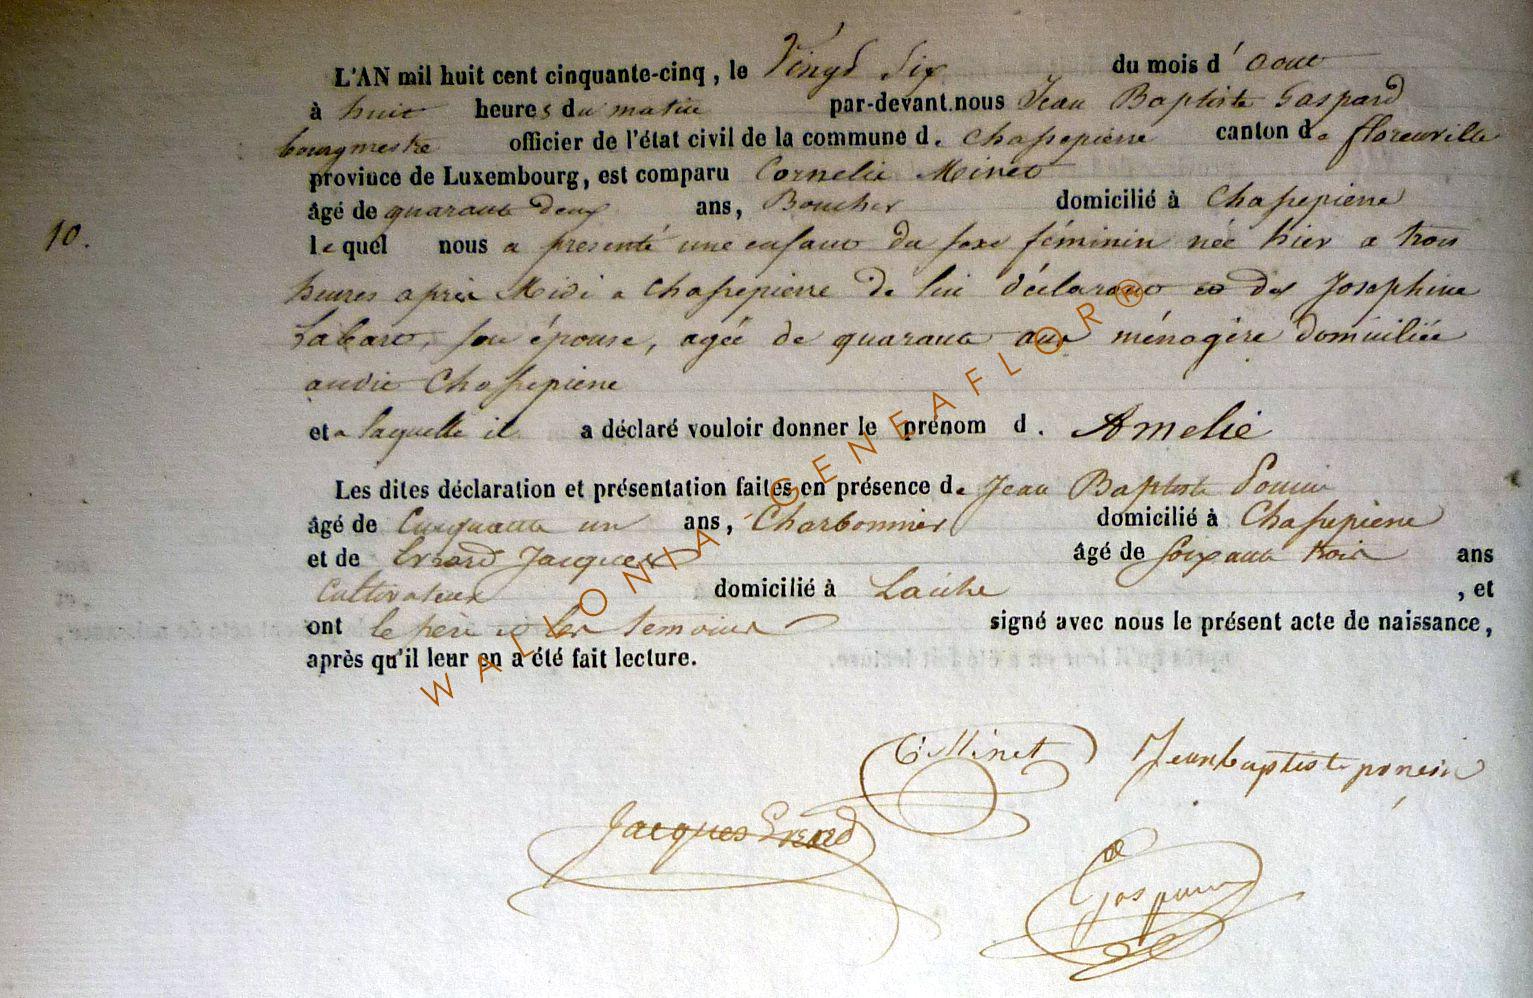 L'AN mil huit cent cinquante-cinq, le Vingt Six du mois d'aout
à huit heures du matin par-devant nous Jean Baptiste Gaspard
bourgmestre officier de l'état civil de la commune de Chassepierre canton de florenville
province de Luxembourg, est comparu Cornelie Minet
âgé de quarante deux ans, Boucher domicilié à Chassepierre
10. lequel nous a présenté une enfant du sexe féminin née hier a trois
heures après Midi a Chassepierre de lui déclarant et de Josephine
son épouse, agée de quarante ans ménagère domiciliée
audit Chassepierre
et a laquelle il a déclaré vouloir donner le prénom d. Amelie
Les dites déclaration et présentation faites en présence de Jean Baptiste Poncin
âgé de Cinquante un ans, Charbonnier domicilié à Chassepierre
et de Errard Jacques âgé de soixante trois ans
Cultivateur domicilié à Laiche, et
ont le pere et les temoins signé avec nous le présent acte de naissance,
après qu'il leur en a été fait lecture.
WALLONIA GENEAFLOR®
C Minet Jeanbaptiste poncin
Jacques Errard
Gaspard